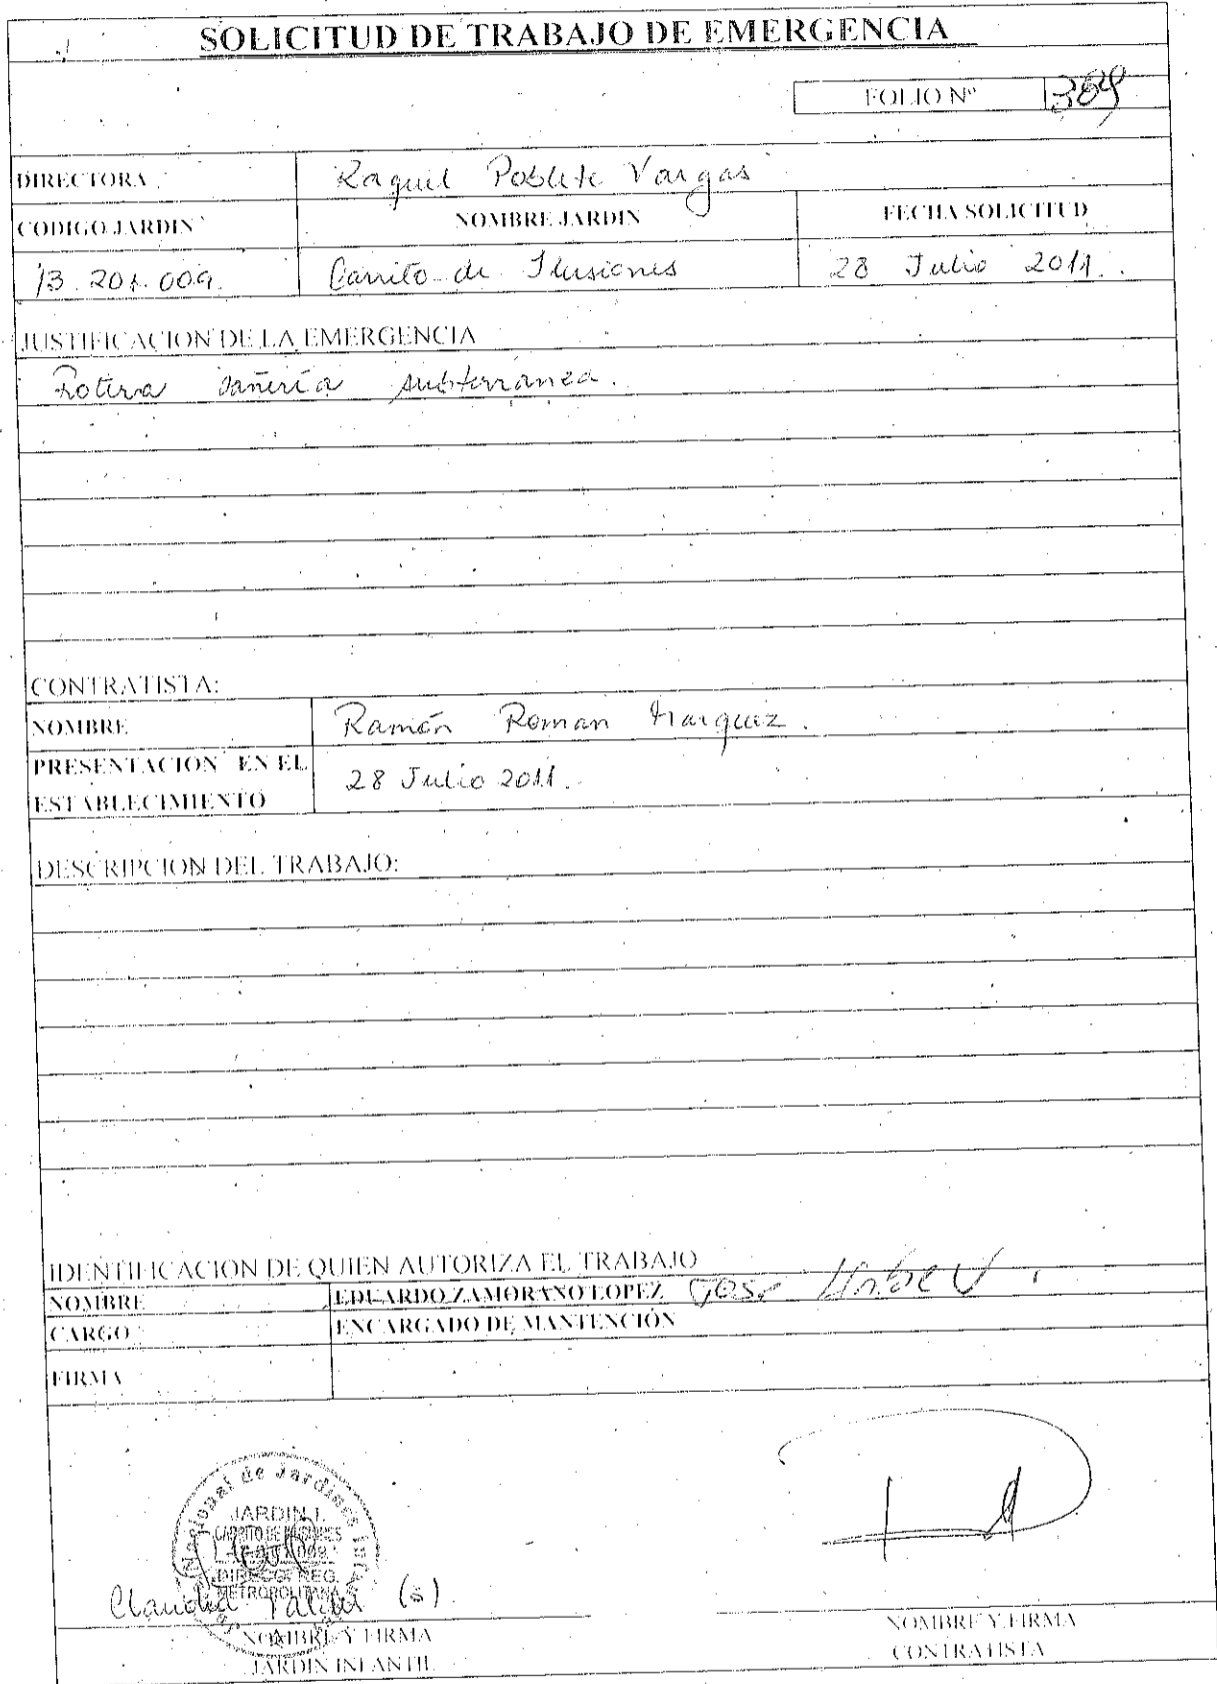 SOLICITUD DE TRABAJO DE EMERGENCIA
FOLIO Nº 389
DIRECTORA Raquel Poblete Vargas
CODIGO JARDIN NOMBRE JARDIN FECHA SOLICITUD
13.201.009. Carrito de Ilusiones 28 Julio 2011.
JUSTIFICACION DE LA EMERGENCIA
Rotura cañería subterranea.
CONTRATISTA:
NOMBRE Ramón Roman Marquez.
PRESENTACION EN EL
ESTABLECIMIENTO 28 Julio 2011.
DESCRIPCION DEL TRABAJO:
IDENTIFICACION DE QUIEN AUTORIZA EL TRABAJO
NOMBRE EDUARDO ZAMORANO LOPEZ José
CARGO ENCARGADO DE MANTENCIÓN
FIRMA
Nacional de Jardines Inf
JARDIN I.
CARRITO DE ILUSIONES
DIRECC. REG.
METROPOLITANA
Claudia (s)
NOMBRE Y FIRMA
JARDIN INFANTIL
NOMBRE Y FIRMA
CONTRATISTA